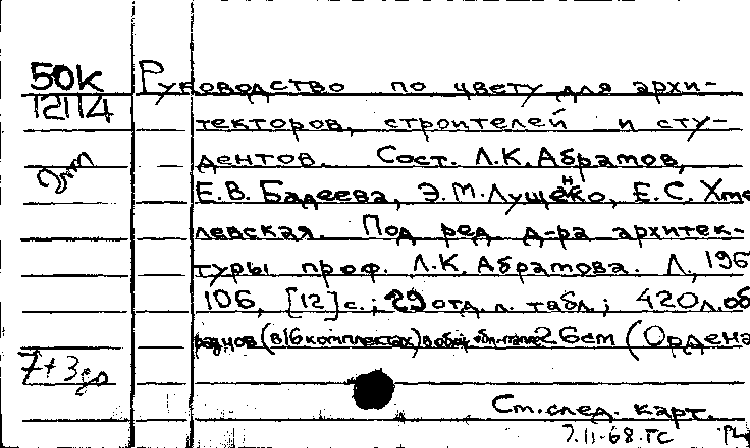 50К
12114
Руководство по цвету для архи-
текторов, строителей и сту-
дентов. Сост. Л.К. Абрамов,
Е.В. Бадеева, Э.М. Лущенко, Е.С. Хме
левская. Под ред. д-ра архитек-
туры проф. Л.К. Абрамова. Л., 196
106, [12] с.; 29 отд. л. табл.; 420 л. об
разцов (в 16 комплектах) в 26 см (Ордена
См. след. карт.
7.II-68. ГС